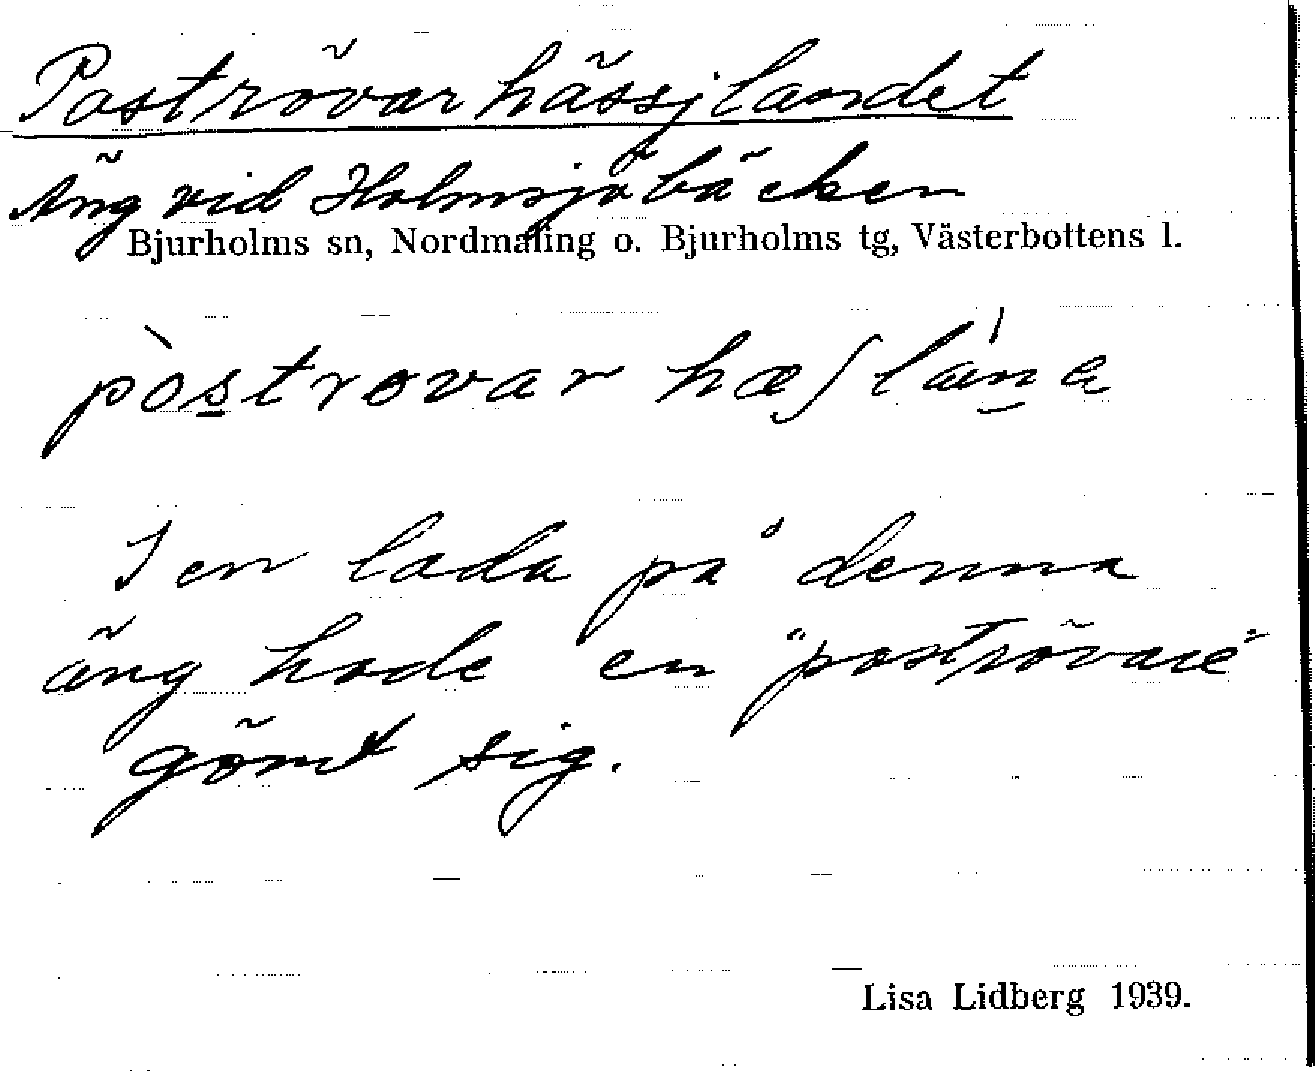 Poströvarhässjlandet
Äng vid Holmsjöbäcken
Bjurholms sn, Nordmaling o. Bjurholms tg, Västerbottens l.
pòs̲trovar hæʃláṉa
I en lada på denna
äng hade en "poströvare"
gömt sig.
Lisa Lidberg 1939.